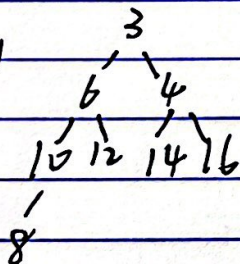 3
6 4
10 12 14 16
8